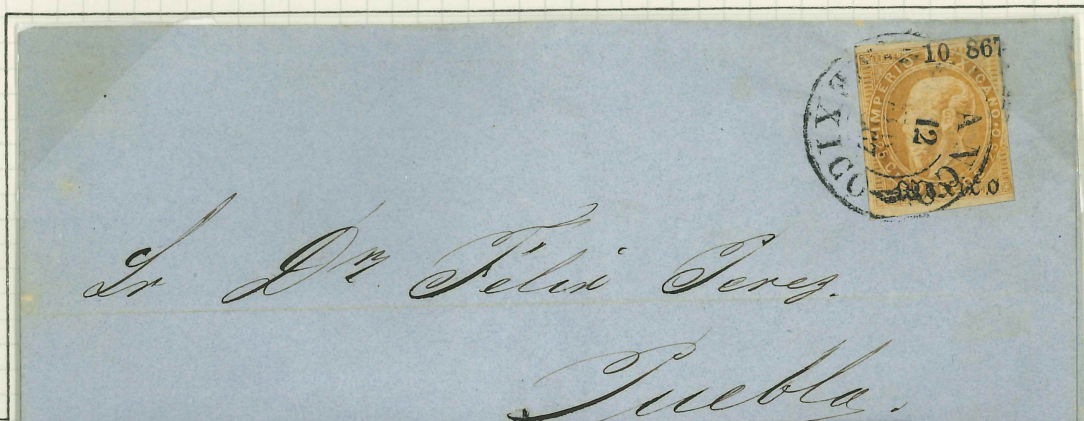 10 867
IMPERIO MEXICANO
MEXICO
12
Mexico
Sr Dn Félix Perez.
Puebla.